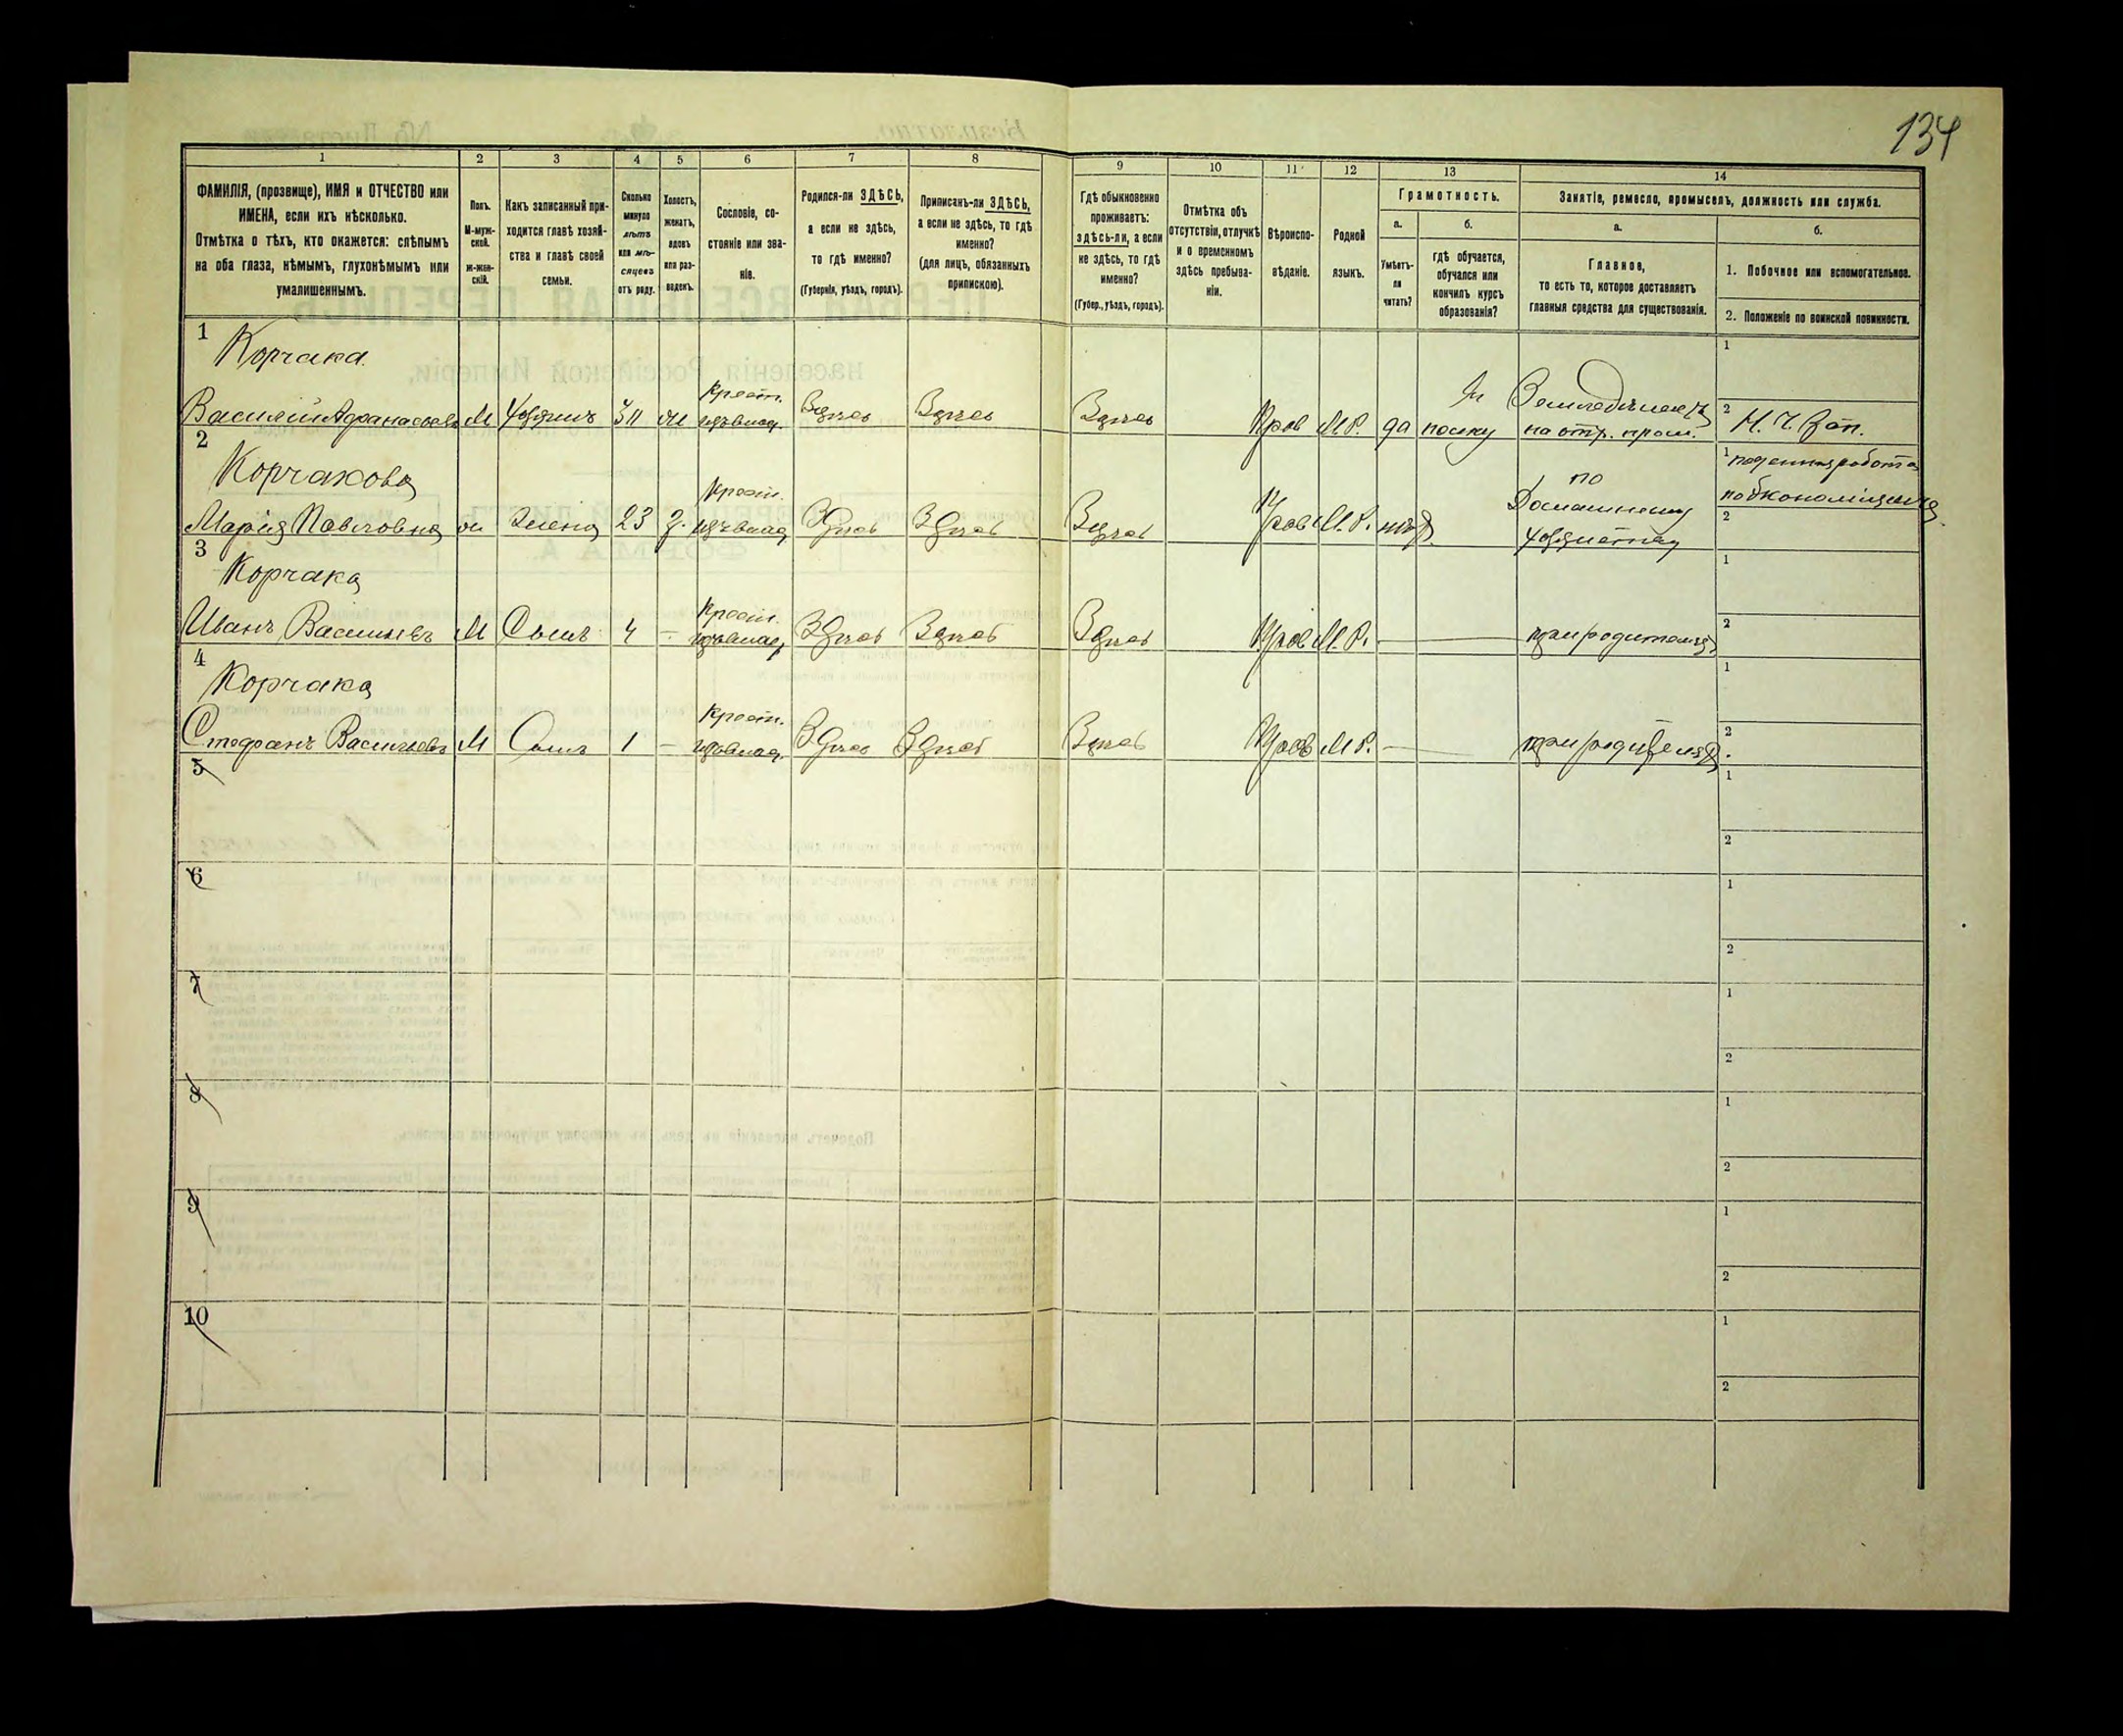 134
1 2 3 4 5 6 7 8 9 10 11 12 13 14
ФАМИЛІЯ, (прозвище), ИМЯ и ОТЧЕСТВО или
ИМЕНА, если ихъ нѣсколько.
Отмѣтка о тѣхъ, кто окажется: слѣпымъ
на оба глаза, нѣмымъ, глухонѣмымъ или
умалишеннымъ.
Полъ.
М-муж-
ской.
ж-жен-
скій.
Какъ записанный при-
ходится главѣ хозяй-
ства и главѣ своей
семьи.
Сколько
минуло
лѣтъ
или мѣ-
сяцевъ
отъ роду.
Холостъ,
женатъ,
вдовъ
или раз-
веденъ.
Сословіе, со-
стояніе или зва-
ніе.
Родился-ли ЗДѢСЬ,
а если не здѣсь,
то гдѣ именно?
(Губернія, уѣздъ, городъ).
Приписанъ-ли ЗДѢСЬ,
а если не здѣсь, то гдѣ
именно?
(для лицъ, обязанныхъ
припискою).
Гдѣ обыкновенно
проживаетъ:
здѣсь-ли, а если
не здѣсь, то гдѣ
именно?
(Губер., уѣздъ, городъ).
Отмѣтка объ
отсутствіи, отлучкѣ
и о временномъ
здѣсь пребыва-
ніи.
Вѣроиспо-
вѣданіе.
Родной
языкъ.
Грамотность.
а.
Умѣетъ-
ли
читать?
б.
гдѣ обучается,
обучался или
кончилъ курсъ
образованія?
Занятіе, ремесло, промыселъ, должность или служба.
а.
Главное,
то есть то, которое доставляетъ
главныя средства для существованія.
б.
1. Побочное или вспомогательное.
2. Положеніе по воинской повинности.
1 Корчака
Крест.
Землед
Василій Афанасьевъ М 311 Здѣсь Здѣсь Здѣсь Прав М.Р. да полку на отр. пром. 2 Н. Ч. Зап.
2 Корчакова
Крест. по Домашнему 1 поденная работа
Марія Павловна ж жена 23 З. Здѣсь Здѣсь Здѣсь Прав М.Р. нѣтъ хозяйству 2
3 Корчака
Крест. 1
Иванъ Васильевъ М Сынъ 4 — Здѣсь Здѣсь Здѣсь Прав М.Р. — при родителяхъ 2
4 Корчака
Крест. 1
Стефанъ Васильевъ М Сынъ 1 — Здѣсь Здѣсь Здѣсь Прав М.Р. — при родителяхъ 2
5 1
2
6 1
2
7 1
2
8 1
2
9 1
2
10 1
2